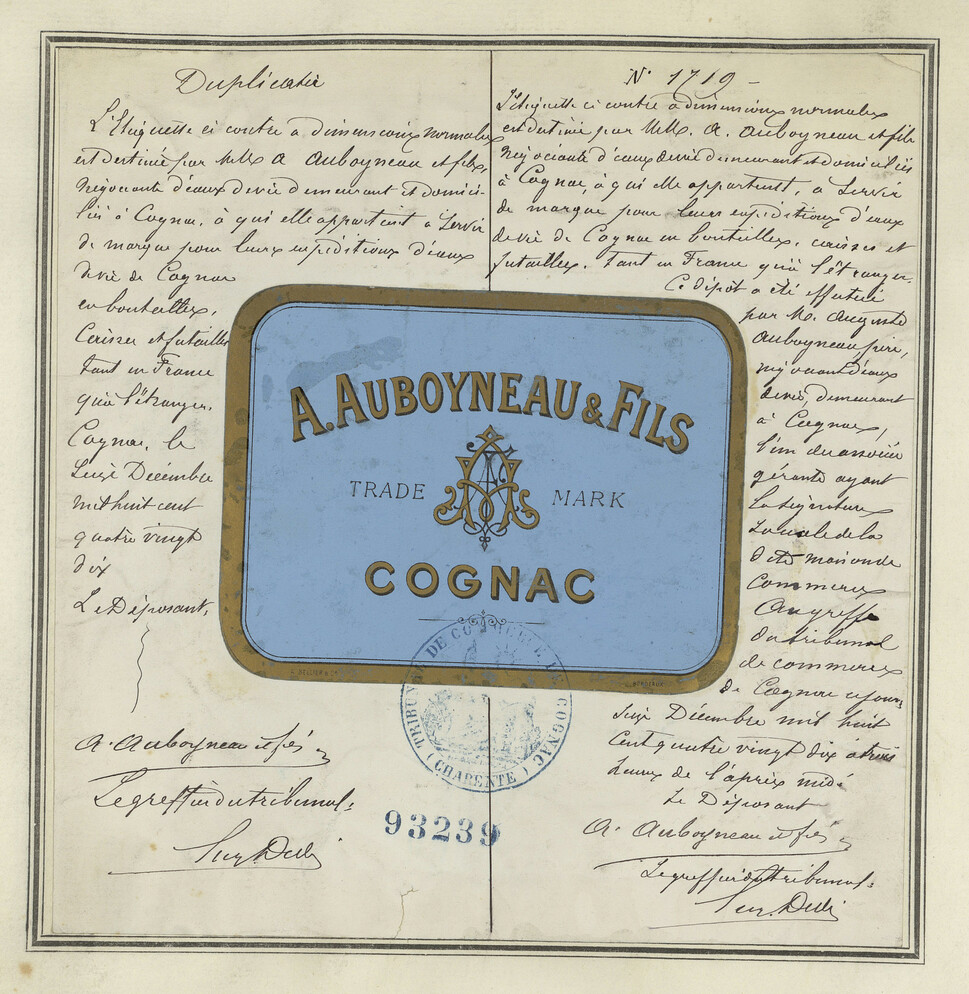 Duplicata
L'Etiquette ci contre à dimensions normales
est destinée par MM. A Auboyneau et fils,
négociants d'eaux de vie demeurant et domici-
liés à Cognac, à qui elle appartient à servir
de marque pour leurs expéditions d'eaux
de vie de Cognac
en bouteilles,
Caisses et futailles
tant en France
qu'à l'étranger.
Cognac, le
Seize Décembre
mil huit cent
quatre vingt
dix
Le Déposant,
A. Auboyneau et fils
Le greffier du tribunal:
N° 1719 -
L'étiquette ci contre à dimensions normales
est destinée par MM. A. Auboyneau et fils
négociants d'eaux de vie demeurant et domiciliés
à Cognac, à qui elle appartient, à servir
de marque pour leurs expéditions d'eaux
de vie de Cognac en bouteilles, caisses et
futailles, tant en France qu'à l'étranger.
Ce dépôt a été effectué
par M. Auguste
Auboyneau père,
négociant d'eaux
de vie, demeurant
à Cognac,
l'un des associés
gérants ayant
la signature
sociale de la
dite maison de
commerce
Au greffe
du tribunal
de commerce
de Cognac ce jour
Seize Décembre mil huit
cent quatre vingt dix à trois
heures de l'après midi
Le Déposant
A. Auboyneau et fils
Le greffier du tribunal:
A. AUBOYNEAU & FILS
TRADE MARK
COGNAC
BORDEAUX
TRIBUNAL DE COMMERCE DE COGNAC
(CHARENTE)
93239